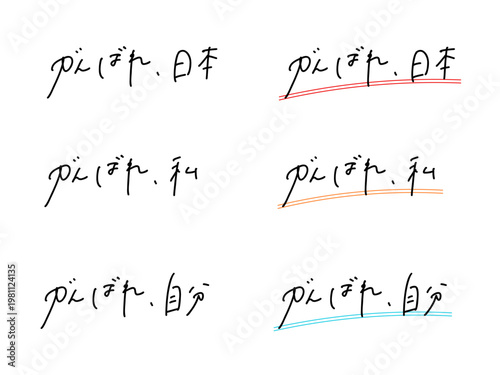 がんばれ、日本 がんばれ、日本
がんばれ、私 がんばれ、私
がんばれ、自分 がんばれ、自分
Adobe Stock | #1981124135